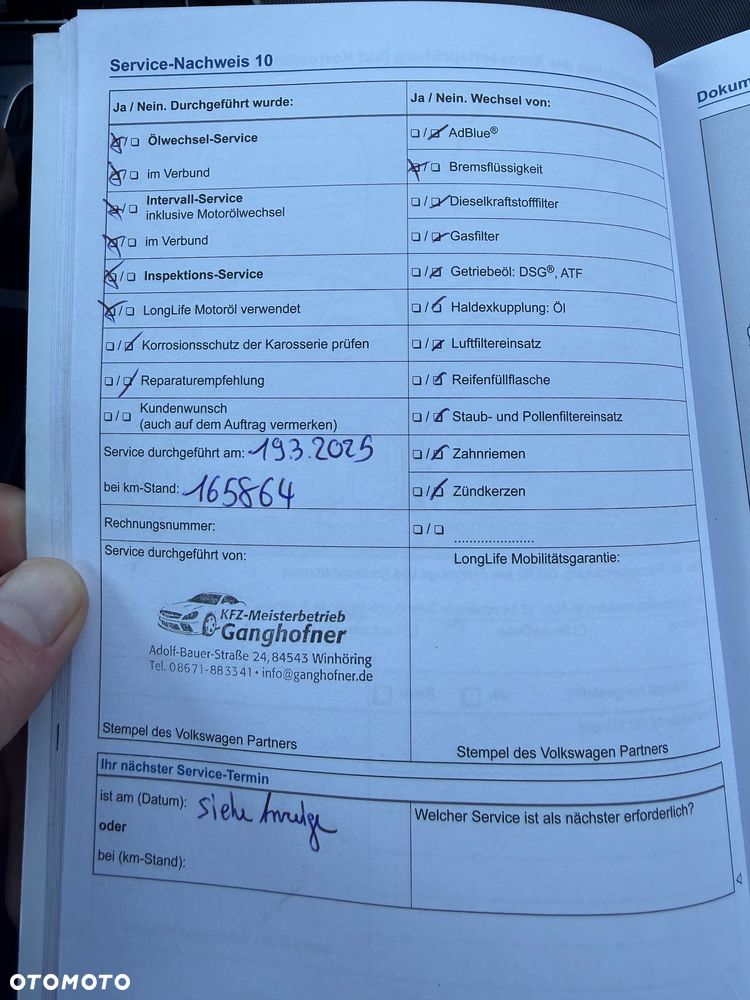 Service-Nachweis 10
Dokum
Ja / Nein. Durchgeführt wurde:
Ölwechsel-Service
im Verbund
Intervall-Service
inklusive Motorölwechsel
im Verbund
Inspektions-Service
LongLife Motoröl verwendet
Korrosionsschutz der Karosserie prüfen
Reparaturempfehlung
Kundenwunsch
(auch auf dem Auftrag vermerken)
Service durchgeführt am: 19.3.2025
bei km-Stand: 165864
Rechnungsnummer:
Service durchgeführt von:
KFZ-Meisterbetrieb
Ganghofner
Adolf-Bauer-Straße 24, 84543 Winhöring
Tel. 08671-883341 · info@ganghofner.de
Stempel des Volkswagen Partners
Ja / Nein. Wechsel von:
AdBlue®
Bremsflüssigkeit
Dieselkraftstofffilter
Gasfilter
Getriebeöl: DSG®, ATF
Haldexkupplung: Öl
Luftfiltereinsatz
Reifenfüllflasche
Staub- und Pollenfiltereinsatz
Zahnriemen
Zündkerzen
LongLife Mobilitätsgarantie:
Stempel des Volkswagen Partners
Ihr nächster Service-Termin
ist am (Datum): siehe Anzeige
oder
bei (km-Stand):
Welcher Service ist als nächster erforderlich?
OTOMOTO